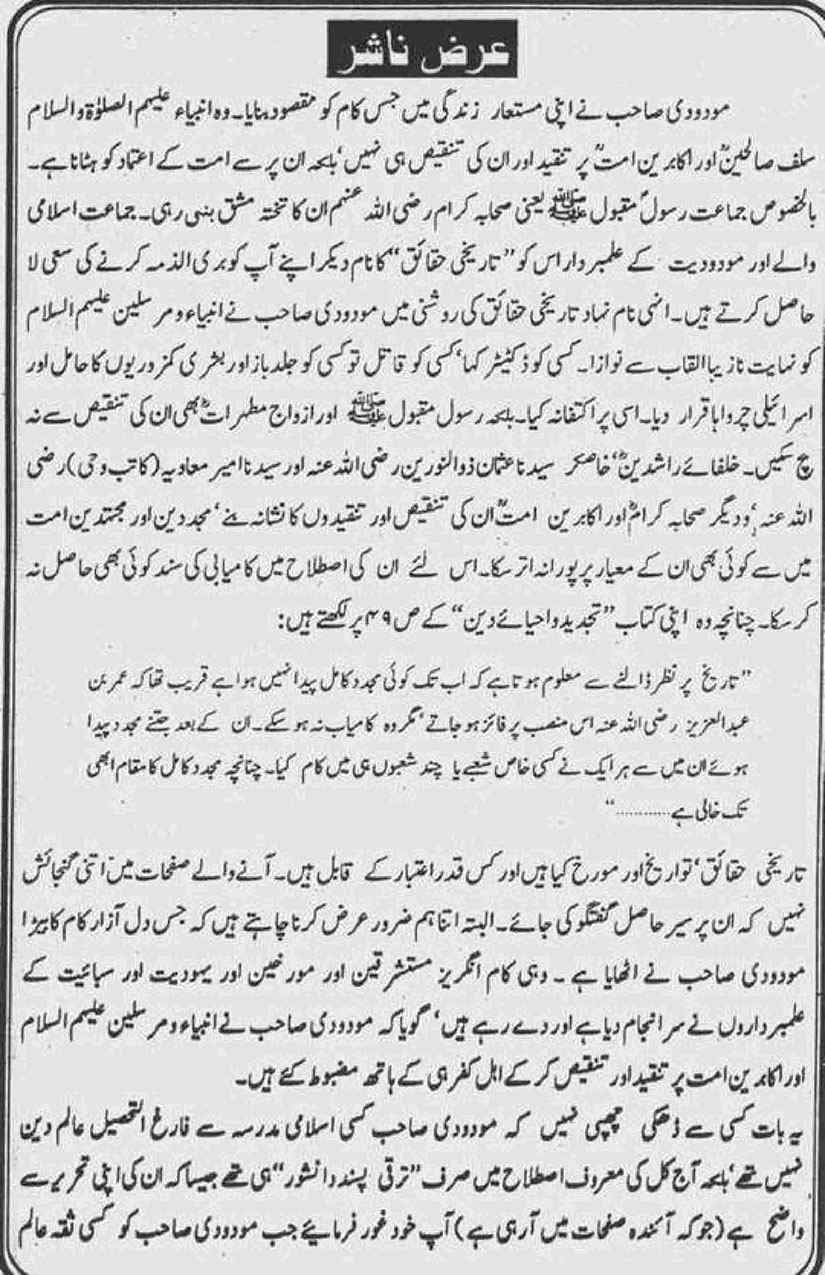 عرض ناشر
مودودی صاحب نے اپنی مستعار زندگی میں جس کام کو مقصود بنایا۔ وہ انبیاء علیہم الصلوٰۃ والسلام
سلف صالحینؒ اور اکابرین امتؒ پر تنقید اور ان کی تنقیص ہی نہیں‘ بلکہ ان پر سے امت کے اعتماد کو ہٹانا ہے۔
بالخصوص جماعت رسول مقبول ﷺ یعنی صحابہ کرام رضی اللہ عنہم ان کا تختہ مشق بنی رہی۔ جماعت اسلامی
والے اور مودودیت کے علمبردار اس کو ”تاریخی حقائق“ کا نام دیکر اپنے آپ کو بری الذمہ کرنے کی سعی لا
حاصل کرتے ہیں۔ انہی نام نہاد تاریخی حقائق کی روشنی میں مودودی صاحب نے انبیاء و مرسلین علیہم السلام
کو نہایت نازیبا القاب سے نوازا۔ کسی کو ڈکٹیٹر کہا‘ کسی کو قاتل تو کسی کو جلد باز اور بشری کمزوریوں کا حامل اور
اسرائیلی چرواہا قرار دیا۔ اسی پر اکتفا نہ کیا۔ بلکہ رسول مقبول ﷺ اور ازواج مطہراتؓ بھی ان کی تنقیص سے نہ
بچ سکیں۔ خلفائے راشدینؓ‘ خاصکر سیدنا عثمان ذوالنورین رضی اللہ عنہ اور سیدنا امیر معاویہ (کاتب وحی) رضی
اللہ عنہ‘ ودیگر صحابہ کرامؓ اور اکابرین امتؒ ان کی تنقیص اور تنقیدوں کا نشانہ بنے‘ مجددین اور مجتہدین امت
میں سے کوئی بھی ان کے معیار پر پورا نہ اتر سکا۔ اس لئے ان کی اصطلاح میں کامیابی کی سند کوئی بھی حاصل نہ
کر سکا۔ چنانچہ وہ اپنی کتاب ”تجدید و احیائے دین“ کے ص ۴۹ پر لکھتے ہیں:
”تاریخ پر نظر ڈالنے سے معلوم ہوتا ہے کہ اب تک کوئی مجدد کامل پیدا نہیں ہوا ہے قریب تھا کہ عمر بن
عبدالعزیز رضی اللہ عنہ اس منصب پر فائز ہو جاتے‘ مگر وہ کامیاب نہ ہو سکے۔ ان کے بعد جتنے مجدد پیدا
ہوئے ان میں سے ہر ایک نے کسی خاص شعبے یا چند شعبوں ہی میں کام کیا۔ چنانچہ مجدد کامل کا مقام ابھی
تک خالی ہے............“
تاریخی حقائق‘ تواریخ اور مورخ کیا ہیں اور کس قدر اعتبار کے قابل ہیں۔ آنے والے صفحات میں اتنی گنجائش
نہیں کہ ان پر سیر حاصل گفتگو کی جائے۔ البتہ اتنا ہم ضرور عرض کرنا چاہتے ہیں کہ جس دل آزار کام کا بیڑا
مودودی صاحب نے اٹھایا ہے۔ وہی کام انگریز مستشرقین اور مورخین اور یہودیت اور سبائیت کے
علمبرداروں نے سرانجام دیا ہے اور دے رہے ہیں‘ گویا کہ مودودی صاحب نے انبیاء و مرسلین علیہم السلام
اور اکابرین امت پر تنقید اور تنقیص کر کے اہل کفر ہی کے ہاتھ مضبوط کئے ہیں۔
یہ بات کسی سے ڈھکی چھپی نہیں کہ مودودی صاحب کسی اسلامی مدرسہ سے فارغ التحصیل عالم دین
نہیں تھے‘ بلکہ آج کل کی معروف اصطلاح میں صرف ”ترقی پسند دانشور“ ہی تھے جیسا کہ ان کی اپنی تحریر سے
واضح ہے (جو کہ آئندہ صفحات میں آرہی ہے) آپ خود غور فرمایئے جب مودودی صاحب کو کسی ثقہ عالم